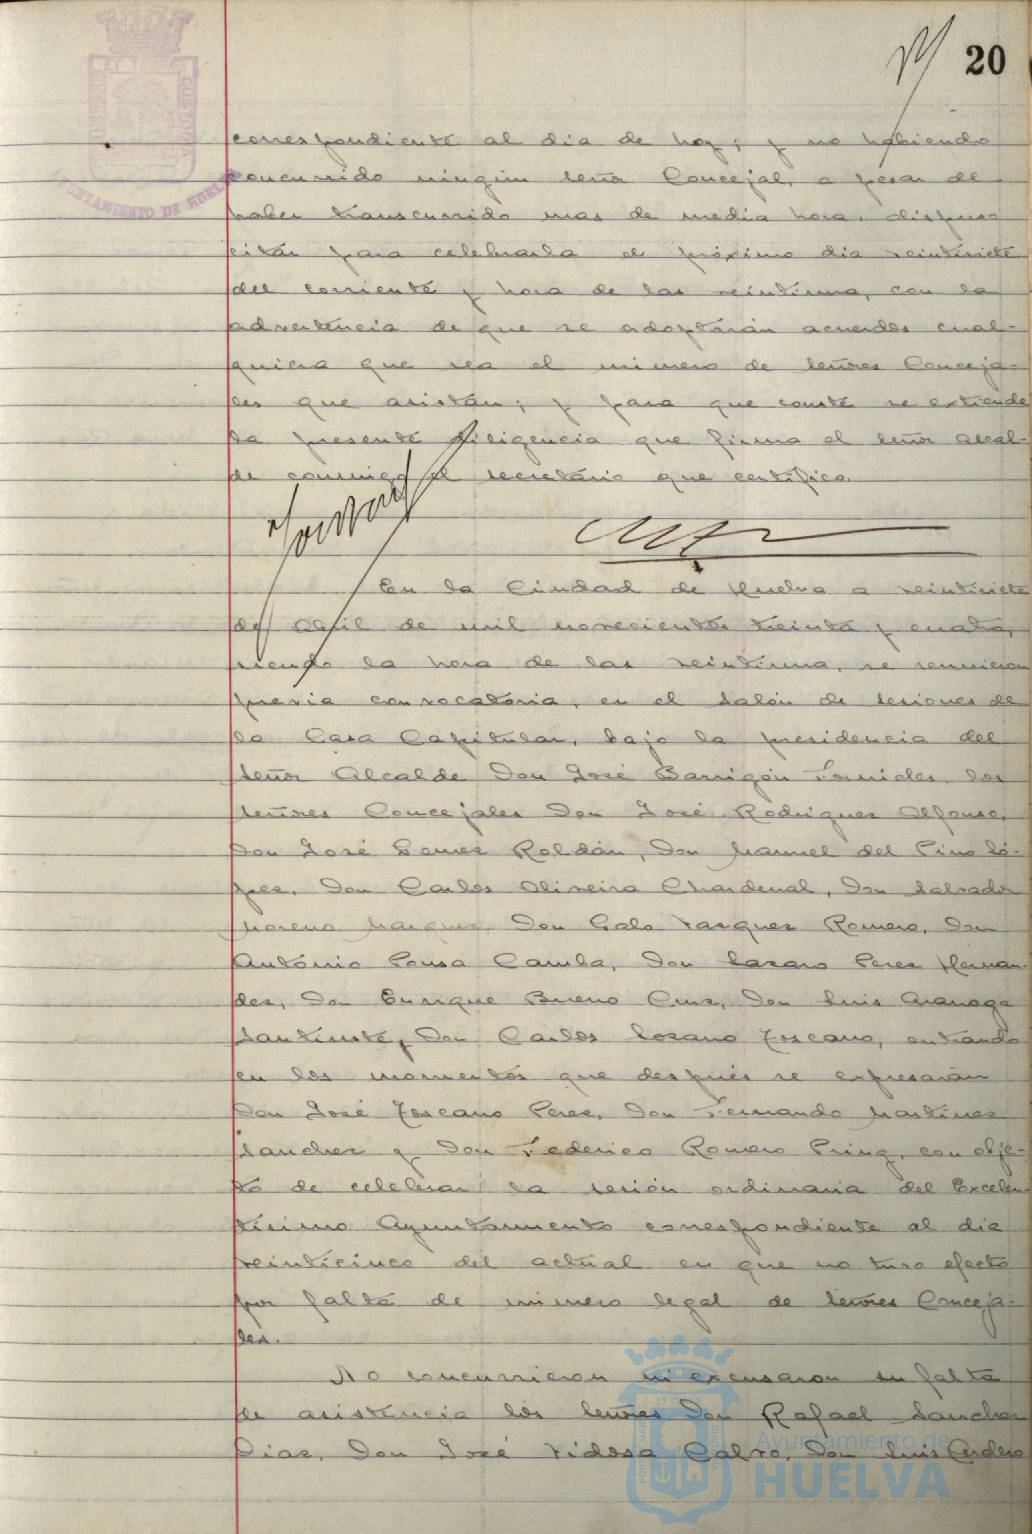 20
correspondiente al dia de hoy; y no habiendo
concurrido ningún señor Concejal, a pesar de
haber transcurrido mas de media hora, dispuso
citar para celebrarla el próximo dia veintisiete
del corriente y hora de las veintiuna, con la
advertencia de que se adoptarán acuerdos cual-
quiera que sea el número de señores Conceja-
les que asistan; y para que conste se extiende
la presente diligencia que firma el señor Alcal-
de conmigo el secretario que certifico.
En la Ciudad de Huelva a veintisiete
de Abril de mil novecientos treinta y cuatro,
siendo la hora de las veintiuna, se reunieron
previa convocatoria, en el Salón de sesiones de
la Casa Capitular, bajo la presidencia del
señor Alcalde Don José Barrigón Fornieles, los
señores Concejales Don José Rodriguez Alfonso,
Don José Gomez Roldán, Don Manuel del Pino Ló-
pez, Don Carlos Oliveira Chardenal, Don Salvador
Moreno Marquez, Don Galo Vazquez Romero, Don
António Pousa Camba, Don Lazaro Perez Hernan-
dez, Don Enrique Bueno Cruz, Don Luis
Don Carlos Lozano Toscano, entrando
en los momentos que después se expresarán
Don José Toscano Perez, Don Fernando Martinez
Sanchez y Don Federico Romero Pring, con obje-
to de celebrar la sesión ordinaria del Excelen-
tísimo Ayuntamiento correspondiente al dia
veinticinco del actual en que no tuvo efecto
por falta de número legal de señores Conceja-
les.
No concurrieron ni excusaron su falta
de asistencia los señores Don Rafael Sanchez
Diaz, Don José Vidosa Calvo, Don Luis Cordero
AYUNTAMIENTO DE HUELVA
Ayuntamiento de
HUELVA